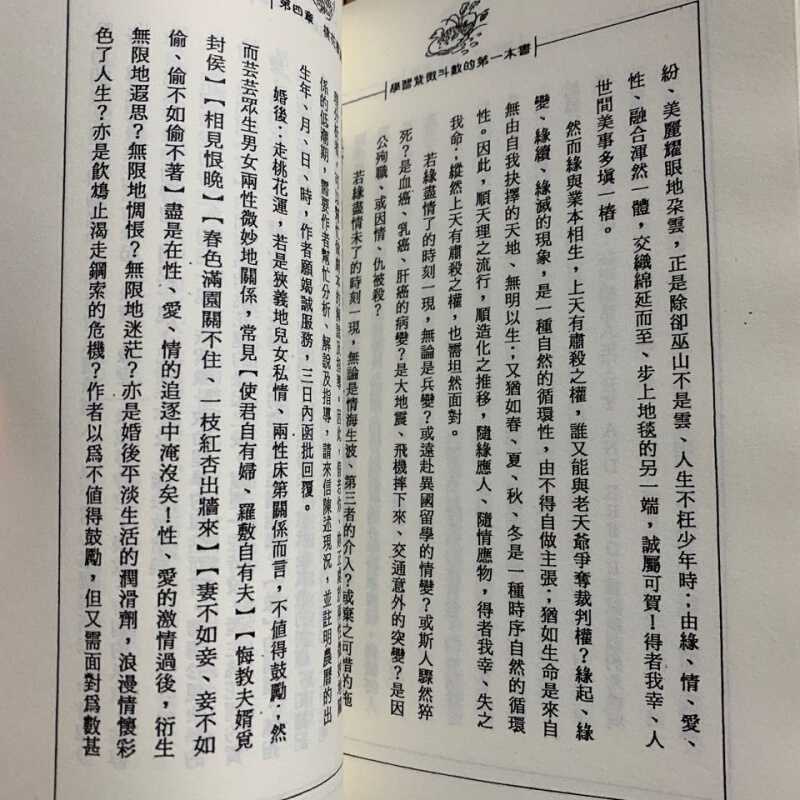 學習紫微斗數的第一本書
紛、美麗耀眼地朶雲，正是除卻巫山不是雲、人生不枉少年時；由緣、情、愛、
性、融合渾然一體，交織綿延而至、步上地毯的另一端，誠屬可賀！得者我幸、人
世間美事多塡一樁。
然而緣與業本相生，上天有肅殺之權，誰又能與老天爺爭奪裁判權？緣起、緣
變、緣續、緣滅的現象，是一種自然的循環性，由不得自做主張；猶如生命是來自
無由自我抉擇的天地、無明以生；又猶如春、夏、秋、冬是一種時序自然的循環
性。因此，順天理之流行，順造化之推移，隨緣應人、隨情應物，得者我幸、失之
我命；縱然上天有肅殺之權，也需坦然面對。
若緣盡情了的時刻一現，無論是兵變？或遠赴異國留學的情變？或斯人驟然猝
死？是血癌、乳癌、肝癌的病變？是大地震、飛機摔下來、交通意外的突變？是因
公殉職、或因情、仇被殺？
若緣盡情未了的時刻一現，無論是情海生波、第三者的介入？或棄之可惜的拖
第四章
係的低潮期，需要作者幫忙分析、解說及指導，請來信陳述現況，並註明農曆的出
生年、月、日、時，作者願竭誠服務，三日內函批回覆。
婚後：走桃花運，若是狹義地兒女私情、兩性床第關係而言，不值得鼓勵；然
而芸芸眾生男女兩性微妙地關係，常見【使君自有婦、羅敷自有夫】【悔教夫婿覓
封侯】【相見恨晚】【春色滿園關不住、一枝紅杏出牆來】【妻不如妾、妾不如
偷、偷不如偷不著】盡是在性、愛、情的追逐中淹沒矣！性、愛的激情過後，衍生
無限地遐思？無限地惆悵？無限地迷茫？亦是婚後平淡生活的潤滑劑，浪漫情懷彩
色了人生？亦是飮鴆止渴走鋼索的危機？作者以爲不值得鼓勵，但又需面對爲數甚